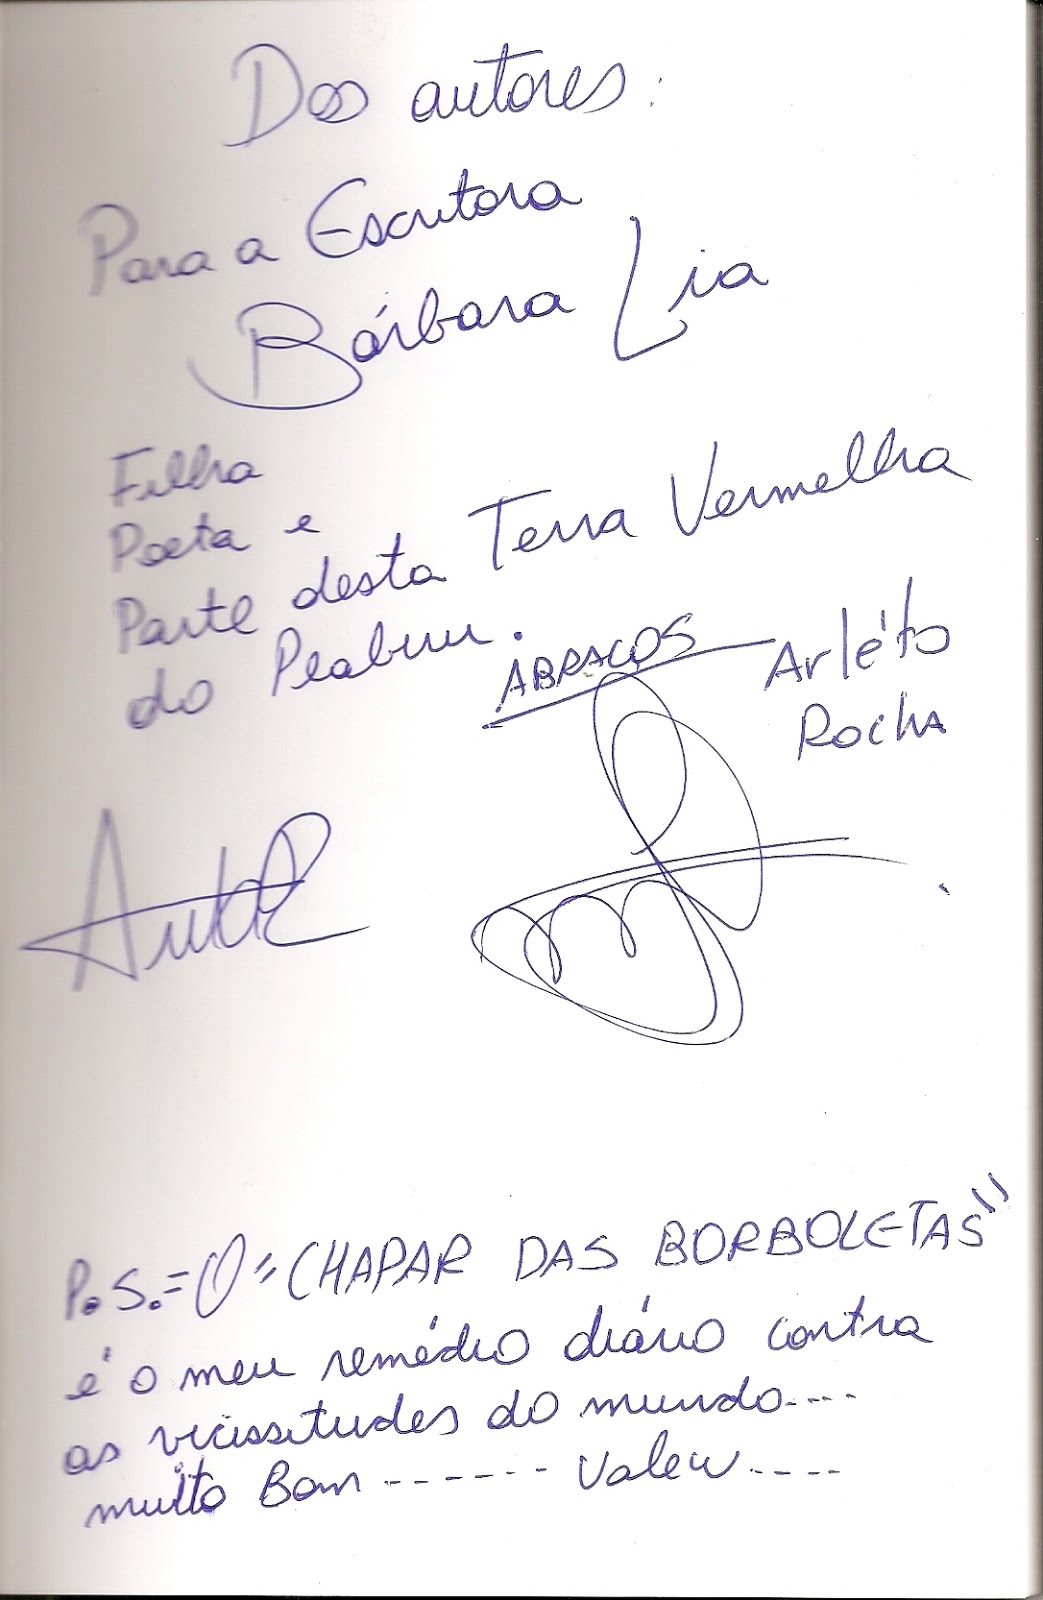 Dos autores:
Para a Escritora
Bárbara Lia
Filha
Poeta e
Parte desta Terra Vermelha
do Peabiru.
ABRAÇOS
Arléto
Rocha
P.S.= O "CHAPAR DAS BORBOLETAS"
é o meu remédio diário contra
as vicissitudes do mundo....
muito Bom ------- Valew.....